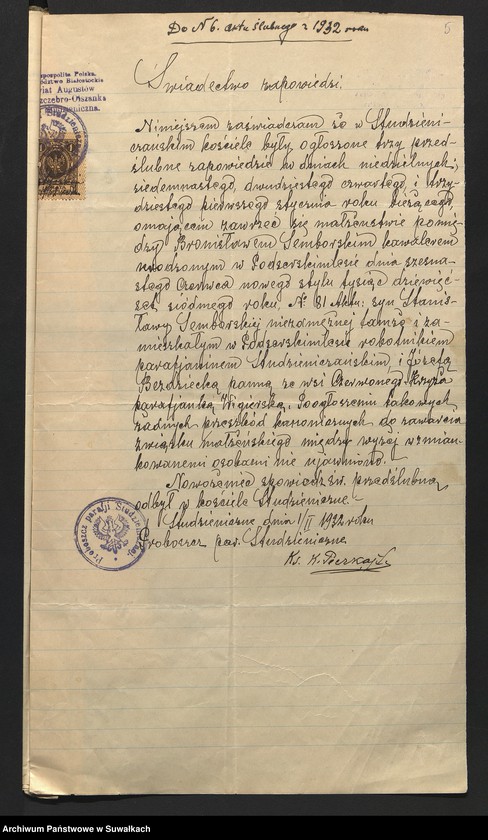 Do N 6. aktu ślubnego z 1932 roku
5
Rzeczpospolita Polska
Województwo Białostockie
Powiat Augustów
Szczebro-Olszanka
Świadectwo zapowiedzi.
Niniejszem zaświadczam że w Studzieni-
czańskim kościele były ogłoszone trzy przed-
ślubne zapowiedzie w dniach niedzielnych:
siedemnastego, dwudziestego czwartego i trzy-
dziestego pierwszego stycznia roku bieżącego
o mającem zawrzeć się małżeństwie pomię-
dzy Bronisławem Semborskim kawalerem
urodzonym w Podserskimlesie dnia szesna-
stego Czerwca nowego stylu tysiąc dziewięć-
set siódmego roku, N: 81 Aktu: syn Stanis-
ławy Semborskiej niezamężnej tamże i za-
mieszkałym w Podserskimlesie robotnikiem
parafjaninem Studzieniczańskim i Józefą
Bezdziecką panną ze wsi Czerwonego-Krzyża
parafjanką Wigierską. Po ogłoszeniu takowych
żadnych przeszkód kanonicznych do zawarcia
związku małżeńskiego między wyżej wzmian-
kowanemi osobami nie ujawniono.
Nowożeniec spowiedź św. przedślubną
odbył w kościele Studzieniczne.
Studzieniczne dnia 1/II 1932 roku
Proboszcz par. Studzieniczne
Proboszcz parafji Studzienicznej
Ks. K.
Archiwum Państwowe w Suwałkach